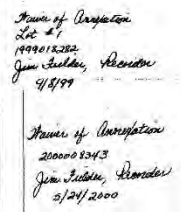 Waiver of Annexation
Lot #1
1999018282
Jim Fielder, Recorder
9/8/99
Waiver of Annexation
2000008343
Jim Fielder, Recorder
5/24/2000